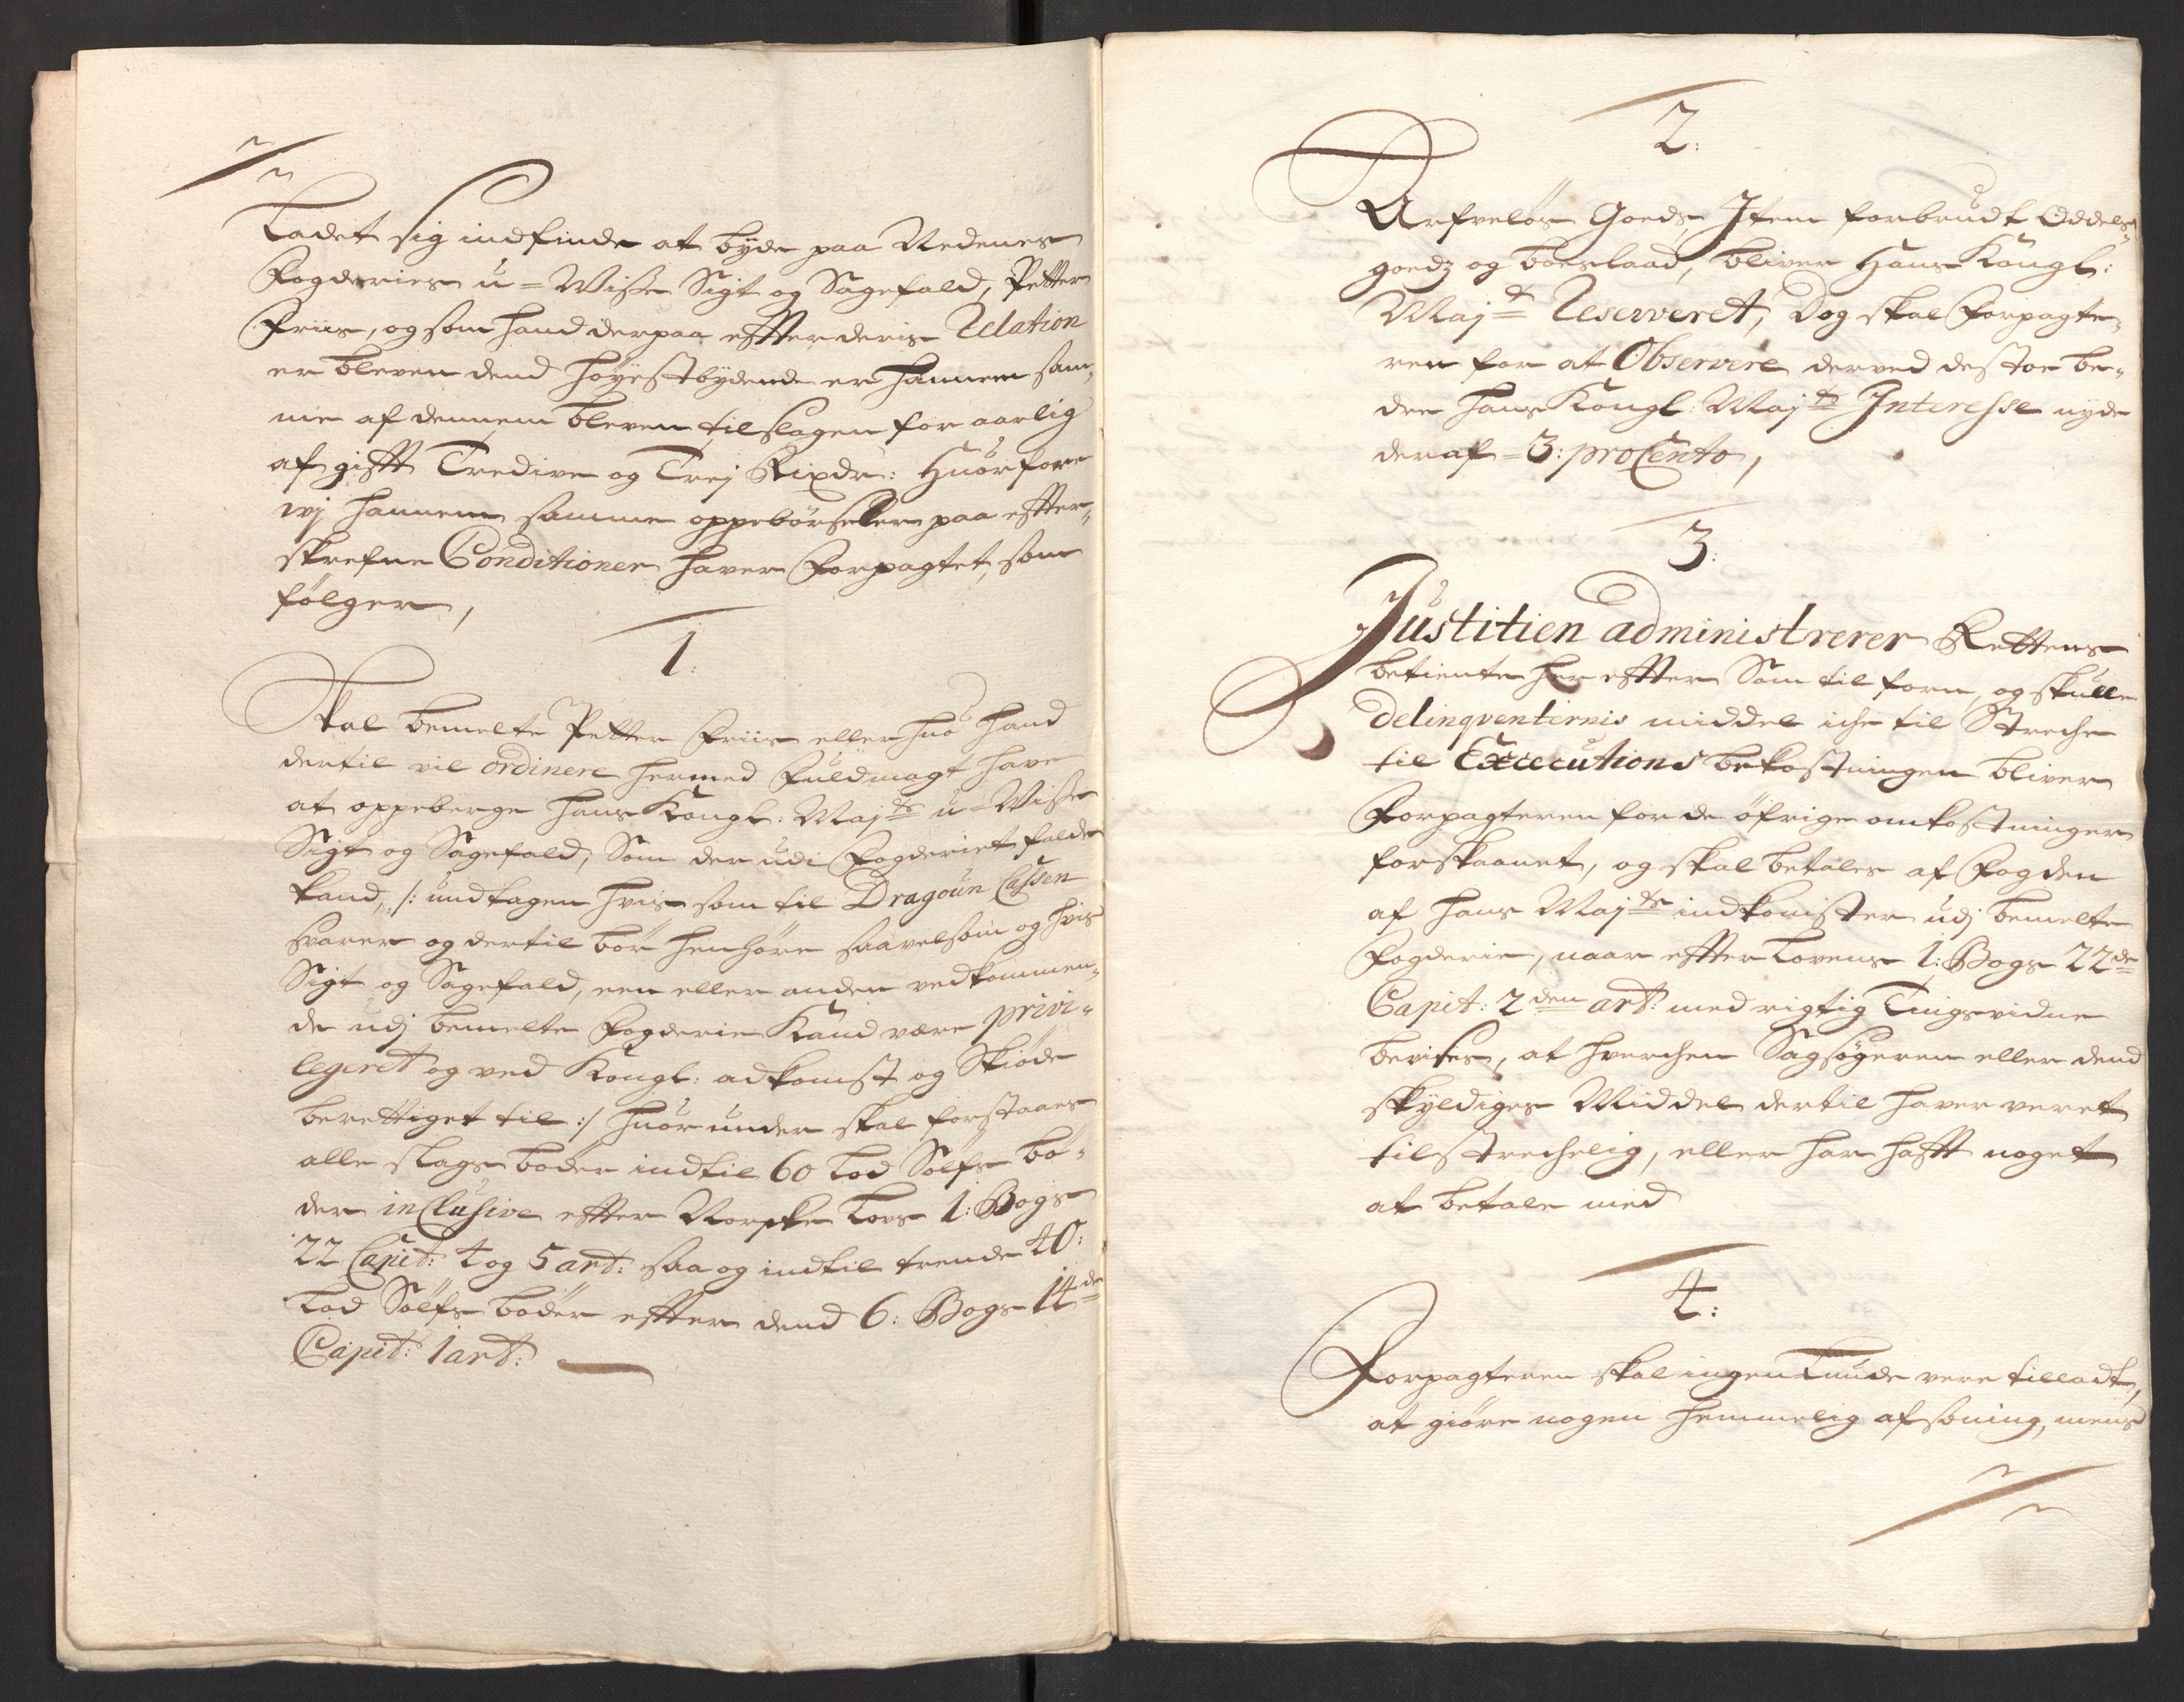 Ladet sig indfinde at byde paa Nedenes
Fogderies u=Wisse Sigt og Sagefald, Petter
Friis, og som hand derpaa effter deris Relation
er bleven dend höyestbydende er hannem sam„
me af dennem bleven tilslagen for aarlig
afgifft Tredive og Trej Rixdr: Huorfore
wj hannem samme oppebörseler paa effter„
skrefne Conditioner haver Forpagtet, som
fölger,
1:
Skal bemelte Petter Friis eller huo hand
dertil vil ordinere hermed Fuldmagt have
at oppeberge hans Kongl: Majts u=Wisse
Sigt og Sagefald, Som der udi Fogderiet falde
kand, /: undtagen hvis som til Dragoun Cassen
svarer og dertil bör henhöre saavelsom og hvis
Sigt og Sagefald, een eller anden vedkommen„
de udj bemelte Fogderie Kand være privi„
legeret og ved Kongl: adkomst og Skiöde
berettiget til :/ huorunder skal forstaaes
alle slags böder indtil 60 Lod Sölfs bö„
der inclusive effter Norske Lovs 1: Bogs
22 Capit: 4 og 5 art: saa og indtil trende 40:
Lod Sölfs böder effter dend 6: Bogs 14de
Capit: 1 art:
2:
Arfvelös Goeds, Item forbrudt Oddels„
goedz og boeslaad, bliver Hans Kongl:
Majt Reserveret, Dog skal Forpagte„
ren for at Observere derved destoe be„
dre hans Kongl: Majts Interesse nyde
deraf = 3: proCento,
3:
Justitien administrerer Rettens
betiente her effter Som til forn, og skulle
delinqventernis middel iche til Streche
til Excecutions bekostningen bliver
Forpagteren for de öfrige omkostninger
forskaanet, og skal betales af Fogden
af hans Majts indkomster udj bemelte
Fogderie, naar effter Lovens 1: Bogs 22de
Capit: 2den art: med rigtig Tingsvidne
bevises, at hverchen Sagsögeren eller dend
skyldiges Middel dertil haver veret
tilstrechelig, eller har hafft noget
at betale med
4:
Forpagteren skal ingenlunde vere tilladt,
at giöre nogen hemmelig afsoning, mens